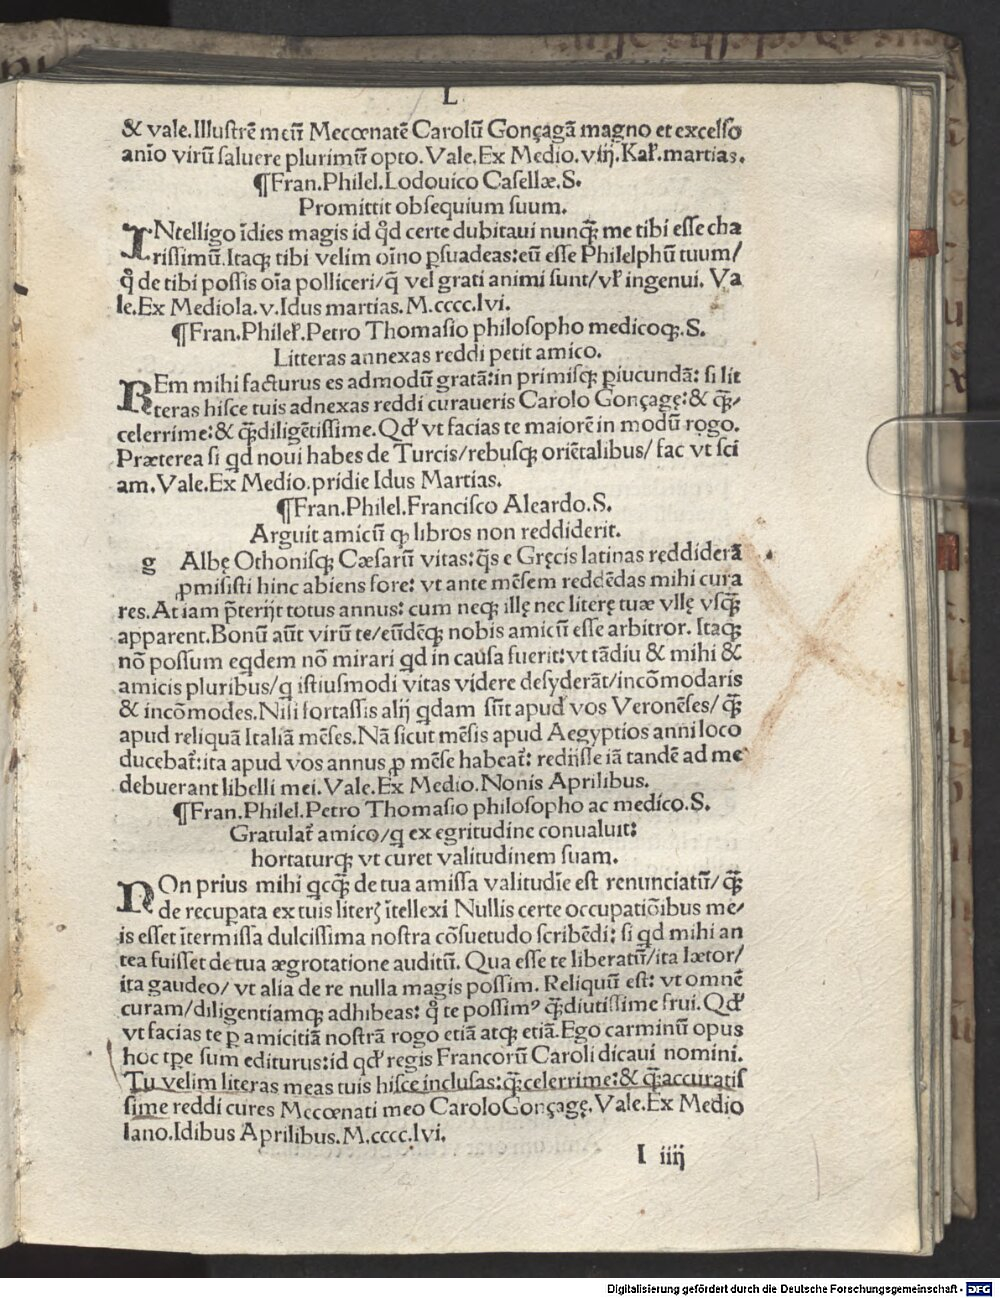 L
& vale. Illustrē meū Mecœnatē Carolū Gonçagā magno et excelso
anīo virū saluere plurimū opto. Vale. Ex Medio. viij. Kaꝉ. martias.
¶Fran. Philel. Lodouico Casellæ. S.
Promittit obsequium suum.
INtelligo īdies magis id qd̄ certe dubitaui nunꝗ̄ me tibi esse cha
rissimū. Itaqꝫ tibi velim oīno ꝑsuadeas: eū esse Philelphū tuum/
q̄ de tibi possis oīa polliceri/ q̄ vel grati animi sunt/ vꝉ ingenui. Va
le. Ex Mediola. v. Idus martias. M.cccc.lvi.
¶Fran. Phileꝉ. Petro Thomasio philosopho medicoqꝫ. S.
Litteras annexas reddi petit amico.
REm mihi facturus es admodū gratā: in primisqꝫ ꝑiucundā: si lit
teras hisce tuis adnexas reddi curaueris Carolo Gonçagę: & ꝗ̄/
celerrime: & ꝗ̄diligētissime. Qd̓ vt facias te maiorē in modū rogo.
Præterea si qd noui habes de Turcis/ rebusqꝫ oriētalibus/ fac vt sci
am. Vale. Ex Medio. pridie Idus Martias.
¶Fran. Philel. Francisco Aleardo. S.
Arguit amicū ꝙ libros non reddiderit.
g Albę Othonisqꝫ Cæsarū vitas: q̄s e Gręcis latinas reddiderā
ꝓmisisti hinc abiens fore: vt ante mēsem reddēdas mihi cura
res. At iam p̄terijt totus annus: cum neqꝫ illę nec literę tuæ vllę vsꝗ̄
apparent. Bonū aūt virū te/ eūdēqꝫ nobis amicū esse arbitror. Itaqꝫ
nō possum eqdem nō mirari qd in causa fuerit: vt tādiu & mihi &
amicis pluribus/ q istiusmodi vitas videre desyderāt/ incōmodaris
& incōmodes. Nisi fortassis alij qdam sūt apud vos Veronēses/ ꝗ̄
apud reliquā Italiā mēses. Nā sicut mēsis apud Aegyptios anni loco
ducebat̄: ita apud vos annus ꝓ mēse habeat̄: redijsse iā tandē ad me
debuerant libelli mei. Vale. Ex Medio. Nonis Aprilibus.
¶Fran. Philel. Petro Thomasio philosopho ac medico. S.
Gratulat̄ amico/ ꝙ ex egritudine conualuit:
hortaturqꝫ vt curet valitudinem suam.
NOn prius mihi qcꝗ̄ de tua amissa valitudīe est renunciatū/ ꝗ̄
de recuꝑata ex tuis literꝫ ītellexi Nullis certe occupatiōibus me/
is esset ītermissa dulcissima nostra cōsuetudo scribēdi: si qd mihi an
tea fuisset de tua ægrotatione auditū. Qua esse te liberatū/ ita lætor/
ita gaudeo/ vt alia de re nulla magis possim. Reliquū est: vt omnē
curam/ diligentiamqꝫ adhibeas: q̊ te possimꝰ ꝗ̄diutissime frui. Qd̓
vt facias te ꝑ amicitiā nostrā rogo etiā atqꝫ etiā. Ego carminū opus
hoc tꝑe sum editurus: id qd̓ regis Francorū Caroli dicaui nomini.
Tu velim literas meas tuis hisce inclusas: ꝗ̄celerrime: & ꝗ̄accuratis
sime reddi cures Mecœnati meo Carolo Gonçagę. Vale. Ex Medio
lano. Idibus Aprilibus. M.cccc.lvi.
I iiij
Digitalisierung gefördert durch die Deutsche Forschungsgemeinschaft - DFG